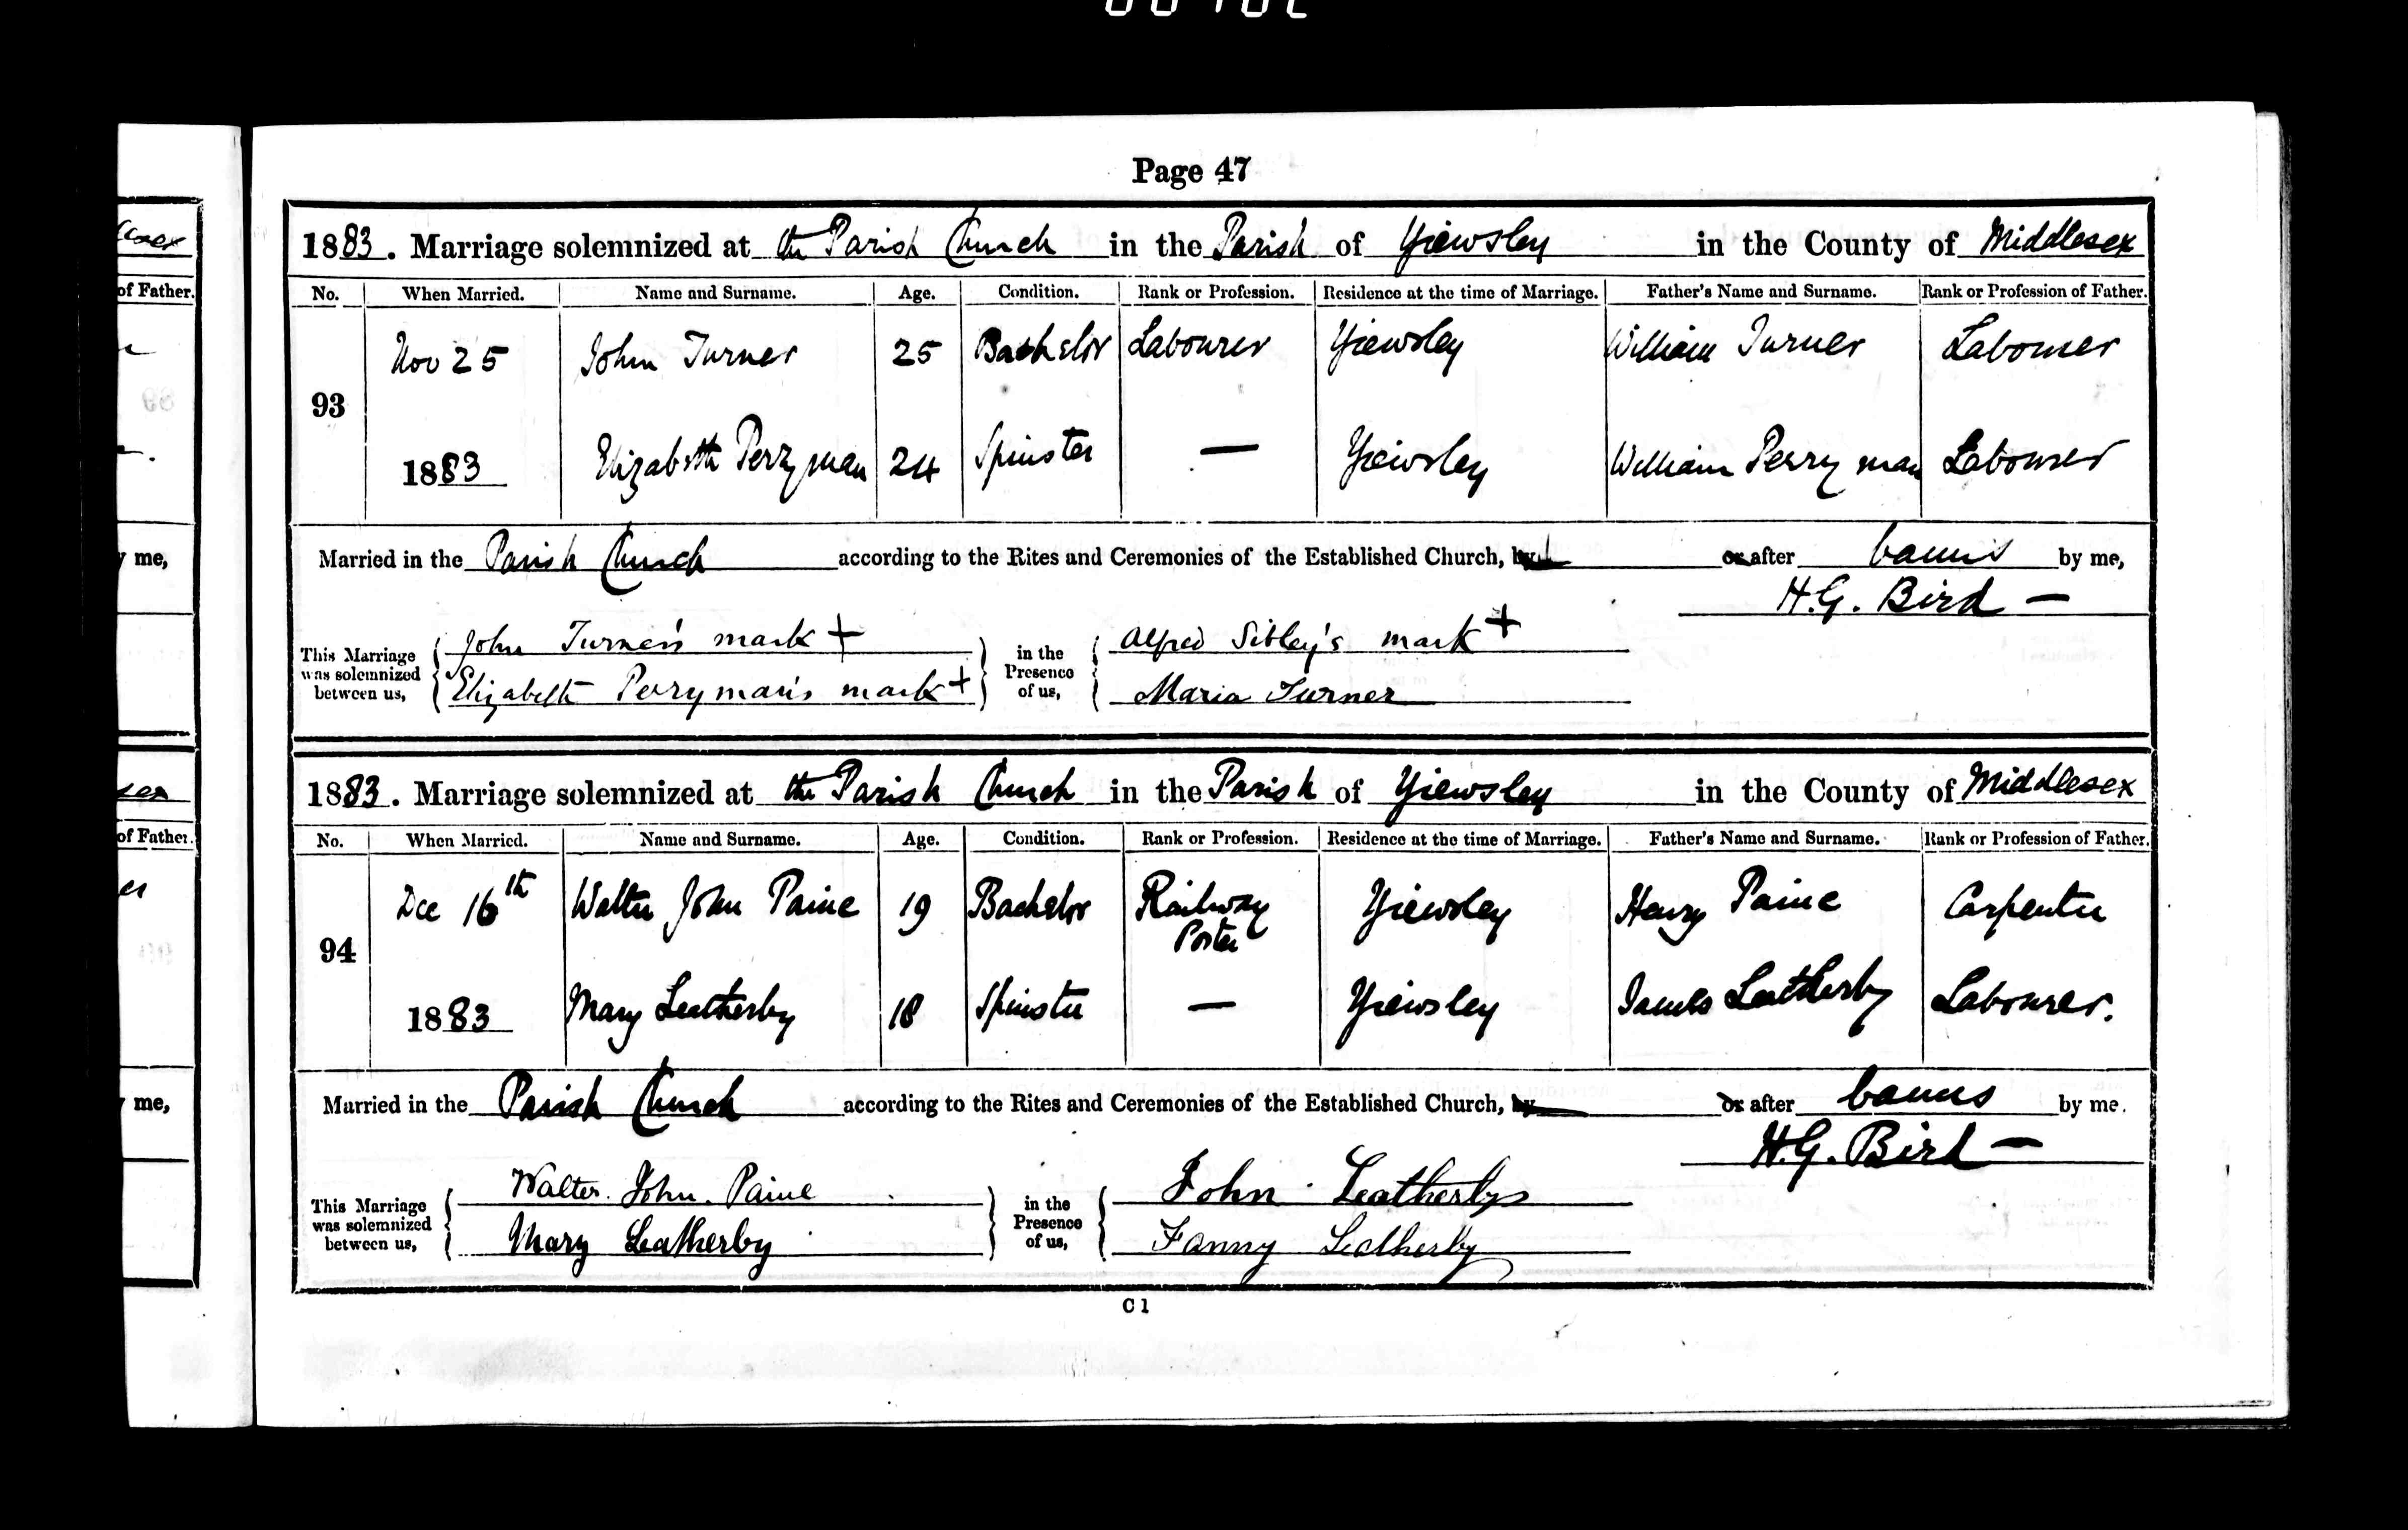 Page 47
1883. Marriage solemnized at the Parish Church in the Parish of Yiewsley in the County of Middlesex
No. When Married. Name and Surname. Age. Condition. Rank or Profession. Residence at the time of Marriage. Father's Name and Surname. Rank or Profession of Father.
Nov 25 John Turner 25 Bachelor Labourer Yiewsley William Turner Labourer
93
1883 Elizabeth Perryman 24 Spinster — Yiewsley William Perryman Labourer
Married in the Parish Church according to the Rites and Ceremonies of the Established Church, by or after banns by me,
H.G. Bird —
This Marriage was solemnized between us, John Turner's mark + in the Presence of us, Alfred Sibley's mark +
Elizabeth Perryman's mark + Maria Turner
1883. Marriage solemnized at the Parish Church in the Parish of Yiewsley in the County of Middlesex
No. When Married. Name and Surname. Age. Condition. Rank or Profession. Residence at the time of Marriage. Father's Name and Surname. Rank or Profession of Father.
Dec 16th Walter John Paine 19 Bachelor Railway Porter Yiewsley Henry Paine Carpenter
94
1883 Mary Leatherby 18 Spinster — Yiewsley James Leatherby Labourer.
Married in the Parish Church according to the Rites and Ceremonies of the Established Church, by or after banns by me.
H.G. Bird —
This Marriage was solemnized between us, Walter John Paine in the Presence of us, John Leatherby
Mary Leatherby Fanny Leatherby
C 1
of Father.
me,
of Father.
me,